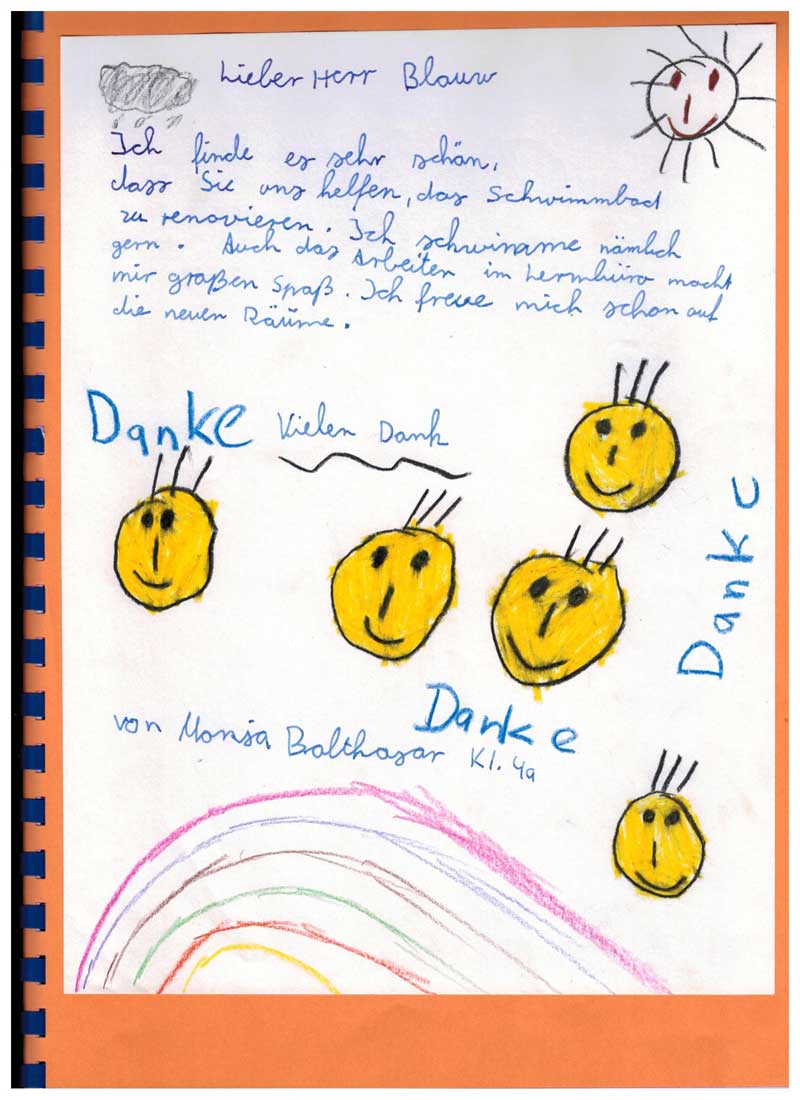 Lieber Herr Blauw
Ich finde es sehr schön,
dass Sie uns helfen, das Schwimmbad
zu renovieren. Ich schwimme nämlich
gern. Auch das Arbeiten im Lernbüro macht
mir großen Spaß. Ich freue mich schon auf
die neuen Räume.
Danke Vielen Dank
Danke
Danke
von Monja Balthasar Kl. 4a